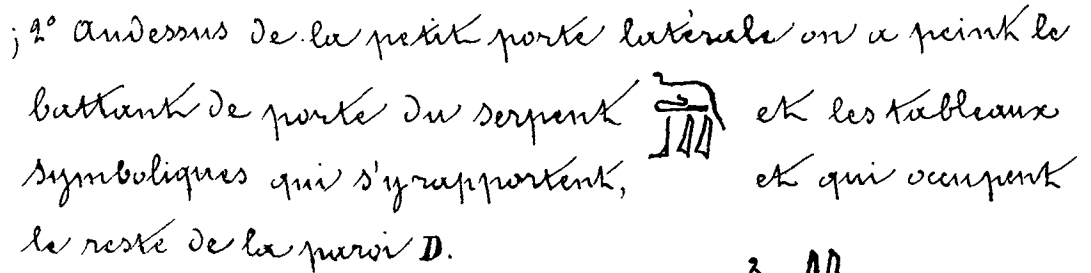 ; 2° Audessus de la petit porte latérale on a peint le
battant de porte du serpent et les tableaux
symboliques qui s'y rapportent, et qui occupent
le reste de la paroi D.